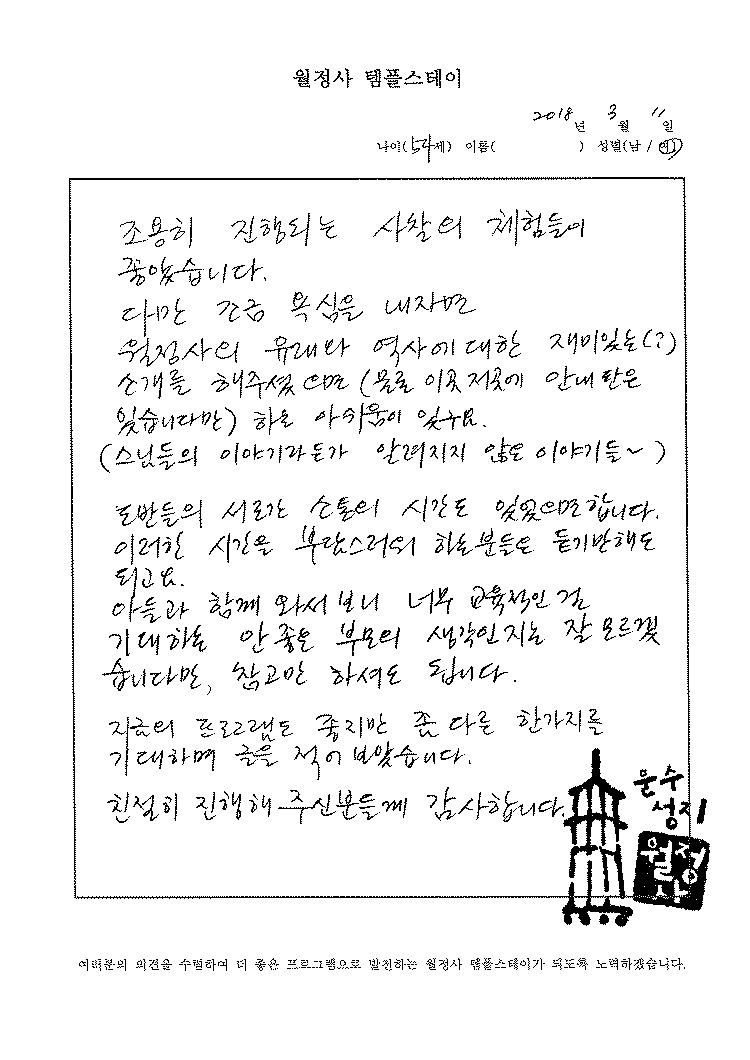 월정사 템플스테이
2018 년 3 월 11 일
나이( 54 세) 이름( ) 성별(남 / 여)
조용히 진행되는 사찰의 체험들이
좋았습니다.
다만 조금 욕심을 내자면
월정사의 유래와 역사에 대한 재미있는(?)
소개를 해주셨으면 (물론 이곳저곳에 안내판은
있습니다만) 하는 아쉬움이 있구요.
(스님들의 이야기라든가 알려지지 않은 이야기들~)
도반들의 서로간 소통의 시간도 있었으면합니다.
이러한 시간을 부담스러워 하는분들은 듣기만해도
되고요.
아들과 함께 와서 보니 너무 교육적인 걸
기대하는 안 좋은 부모의 생각인지는 잘 모르겠
습니다만, 참고만 하셔도 됩니다.
지금의 프로그램도 좋지만 좀 다른 한가지를
기대하며 글을 적어 보았습니다.
친절히 진행해 주신분들께 감사합니다.
문수
성지
월정
사
여러분의 의견을 수렴하여 더 좋은 프로그램으로 발전하는 월정사 템플스테이가 되도록 노력하겠습니다.